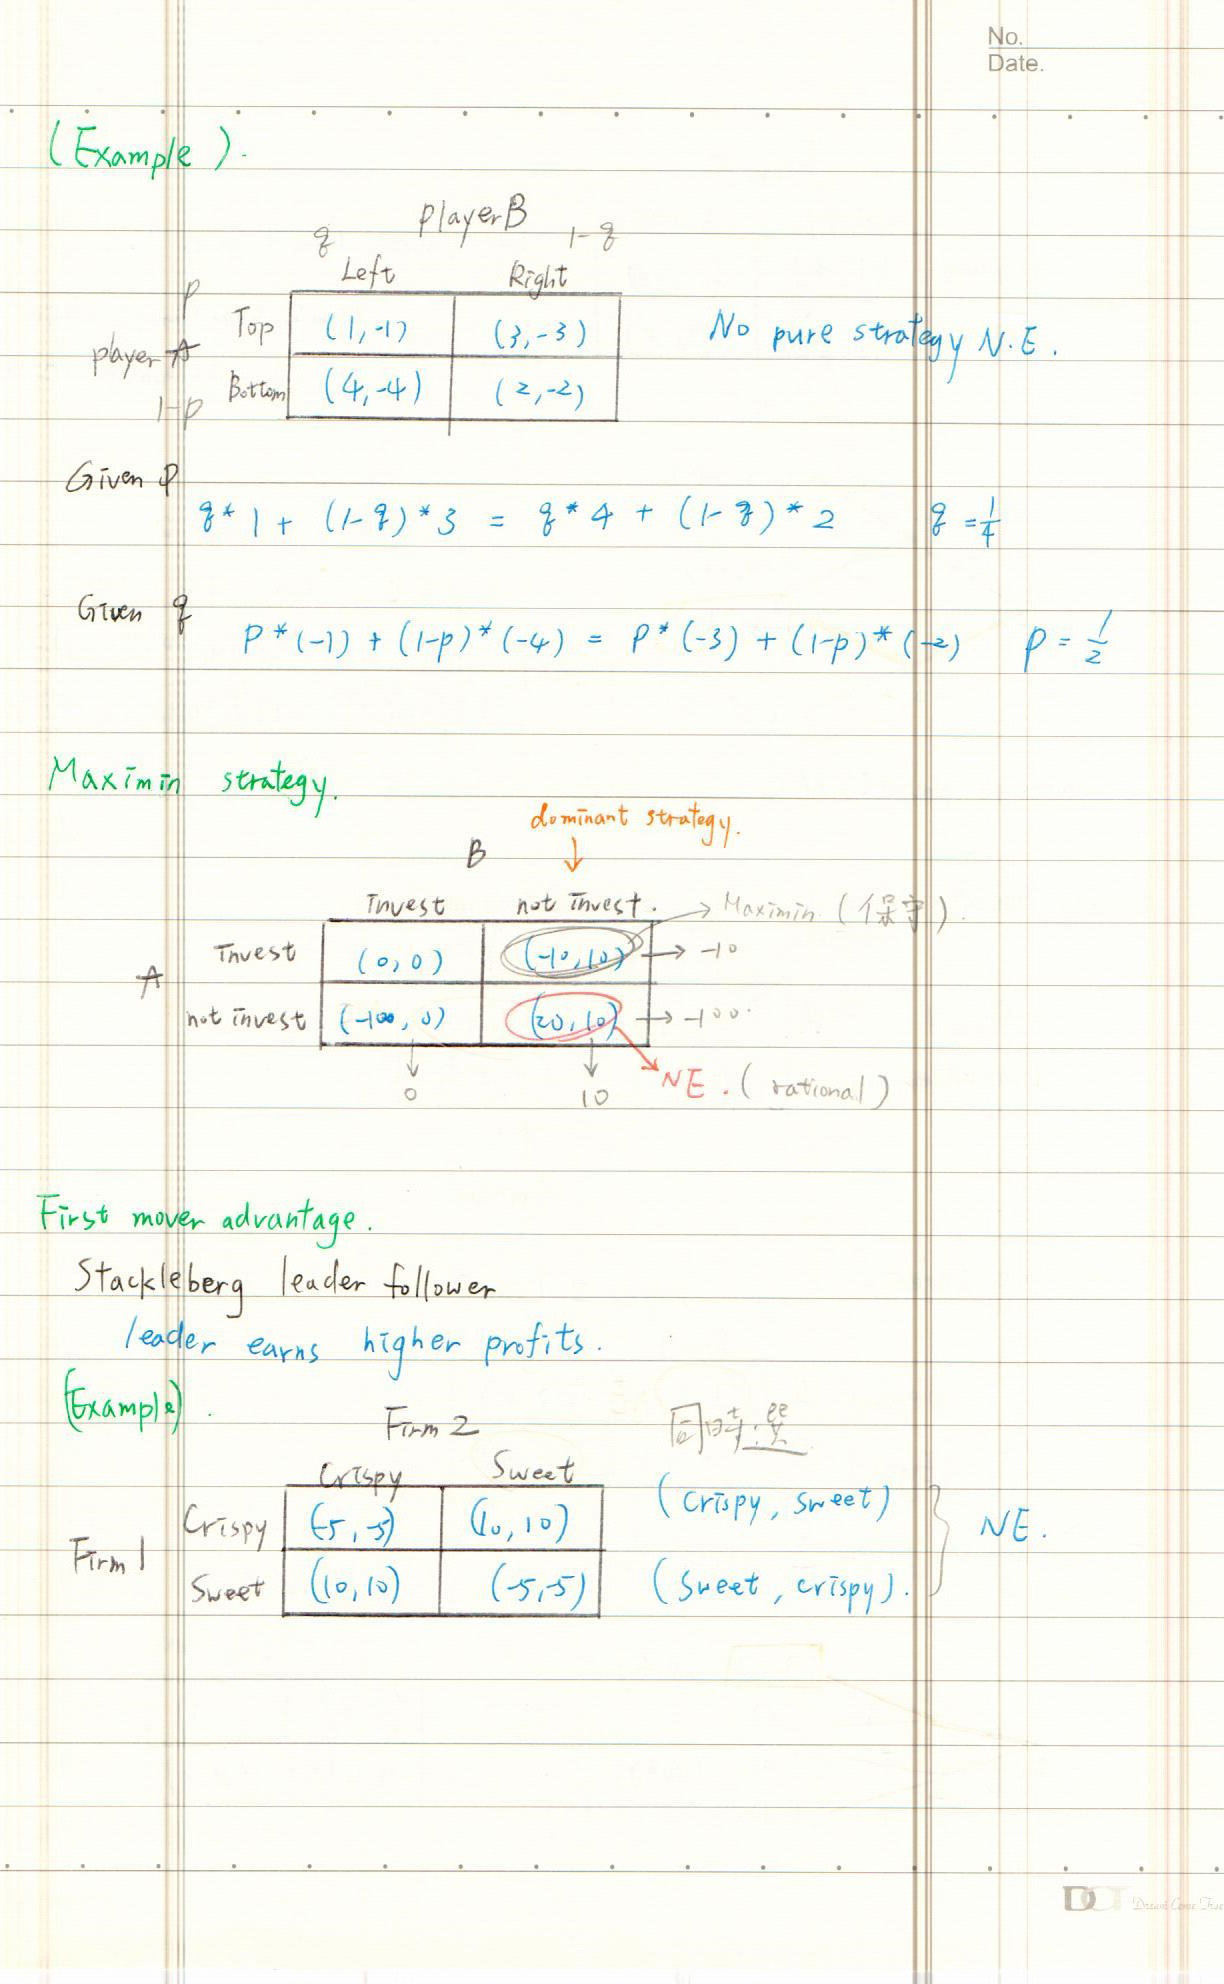 No.
Date.
(Example).
player B
q 1-q
Left Right
p
Top (1,-1) (3,-3) No pure strategy N.E.
player A
Bottom (4,-4) (2,-2)
1-p
Given p
q*1 + (1-q)*3 = q*4 + (1-q)*2 q = 1/4
Given q
p*(-1) + (1-p)*(-4) = p*(-3) + (1-p)*(-2) p = 1/2
Maximin strategy.
dominant strategy.
B ↓
Invest not invest. → Maximin (保守).
Invest (0,0) (-10,10) → -10
A
not invest (-100,0) (20,10) → -100.
↓ ↓
0 10
NE. (rational)
First mover advantage.
Stackleberg leader follower
leader earns higher profits.
(Example).
Firm 2 同時選
Crispy Sweet
Crispy (-5,-5) (10,10) (crispy, sweet)
Firm 1 NE.
Sweet (10,10) (-5,-5) (sweet, crispy).
DOT Dream Come True